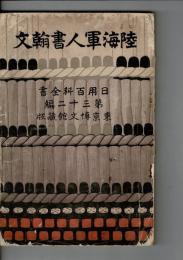 陸海軍人書翰文
日用百科全書
第三十二編
東京博文館蔵版